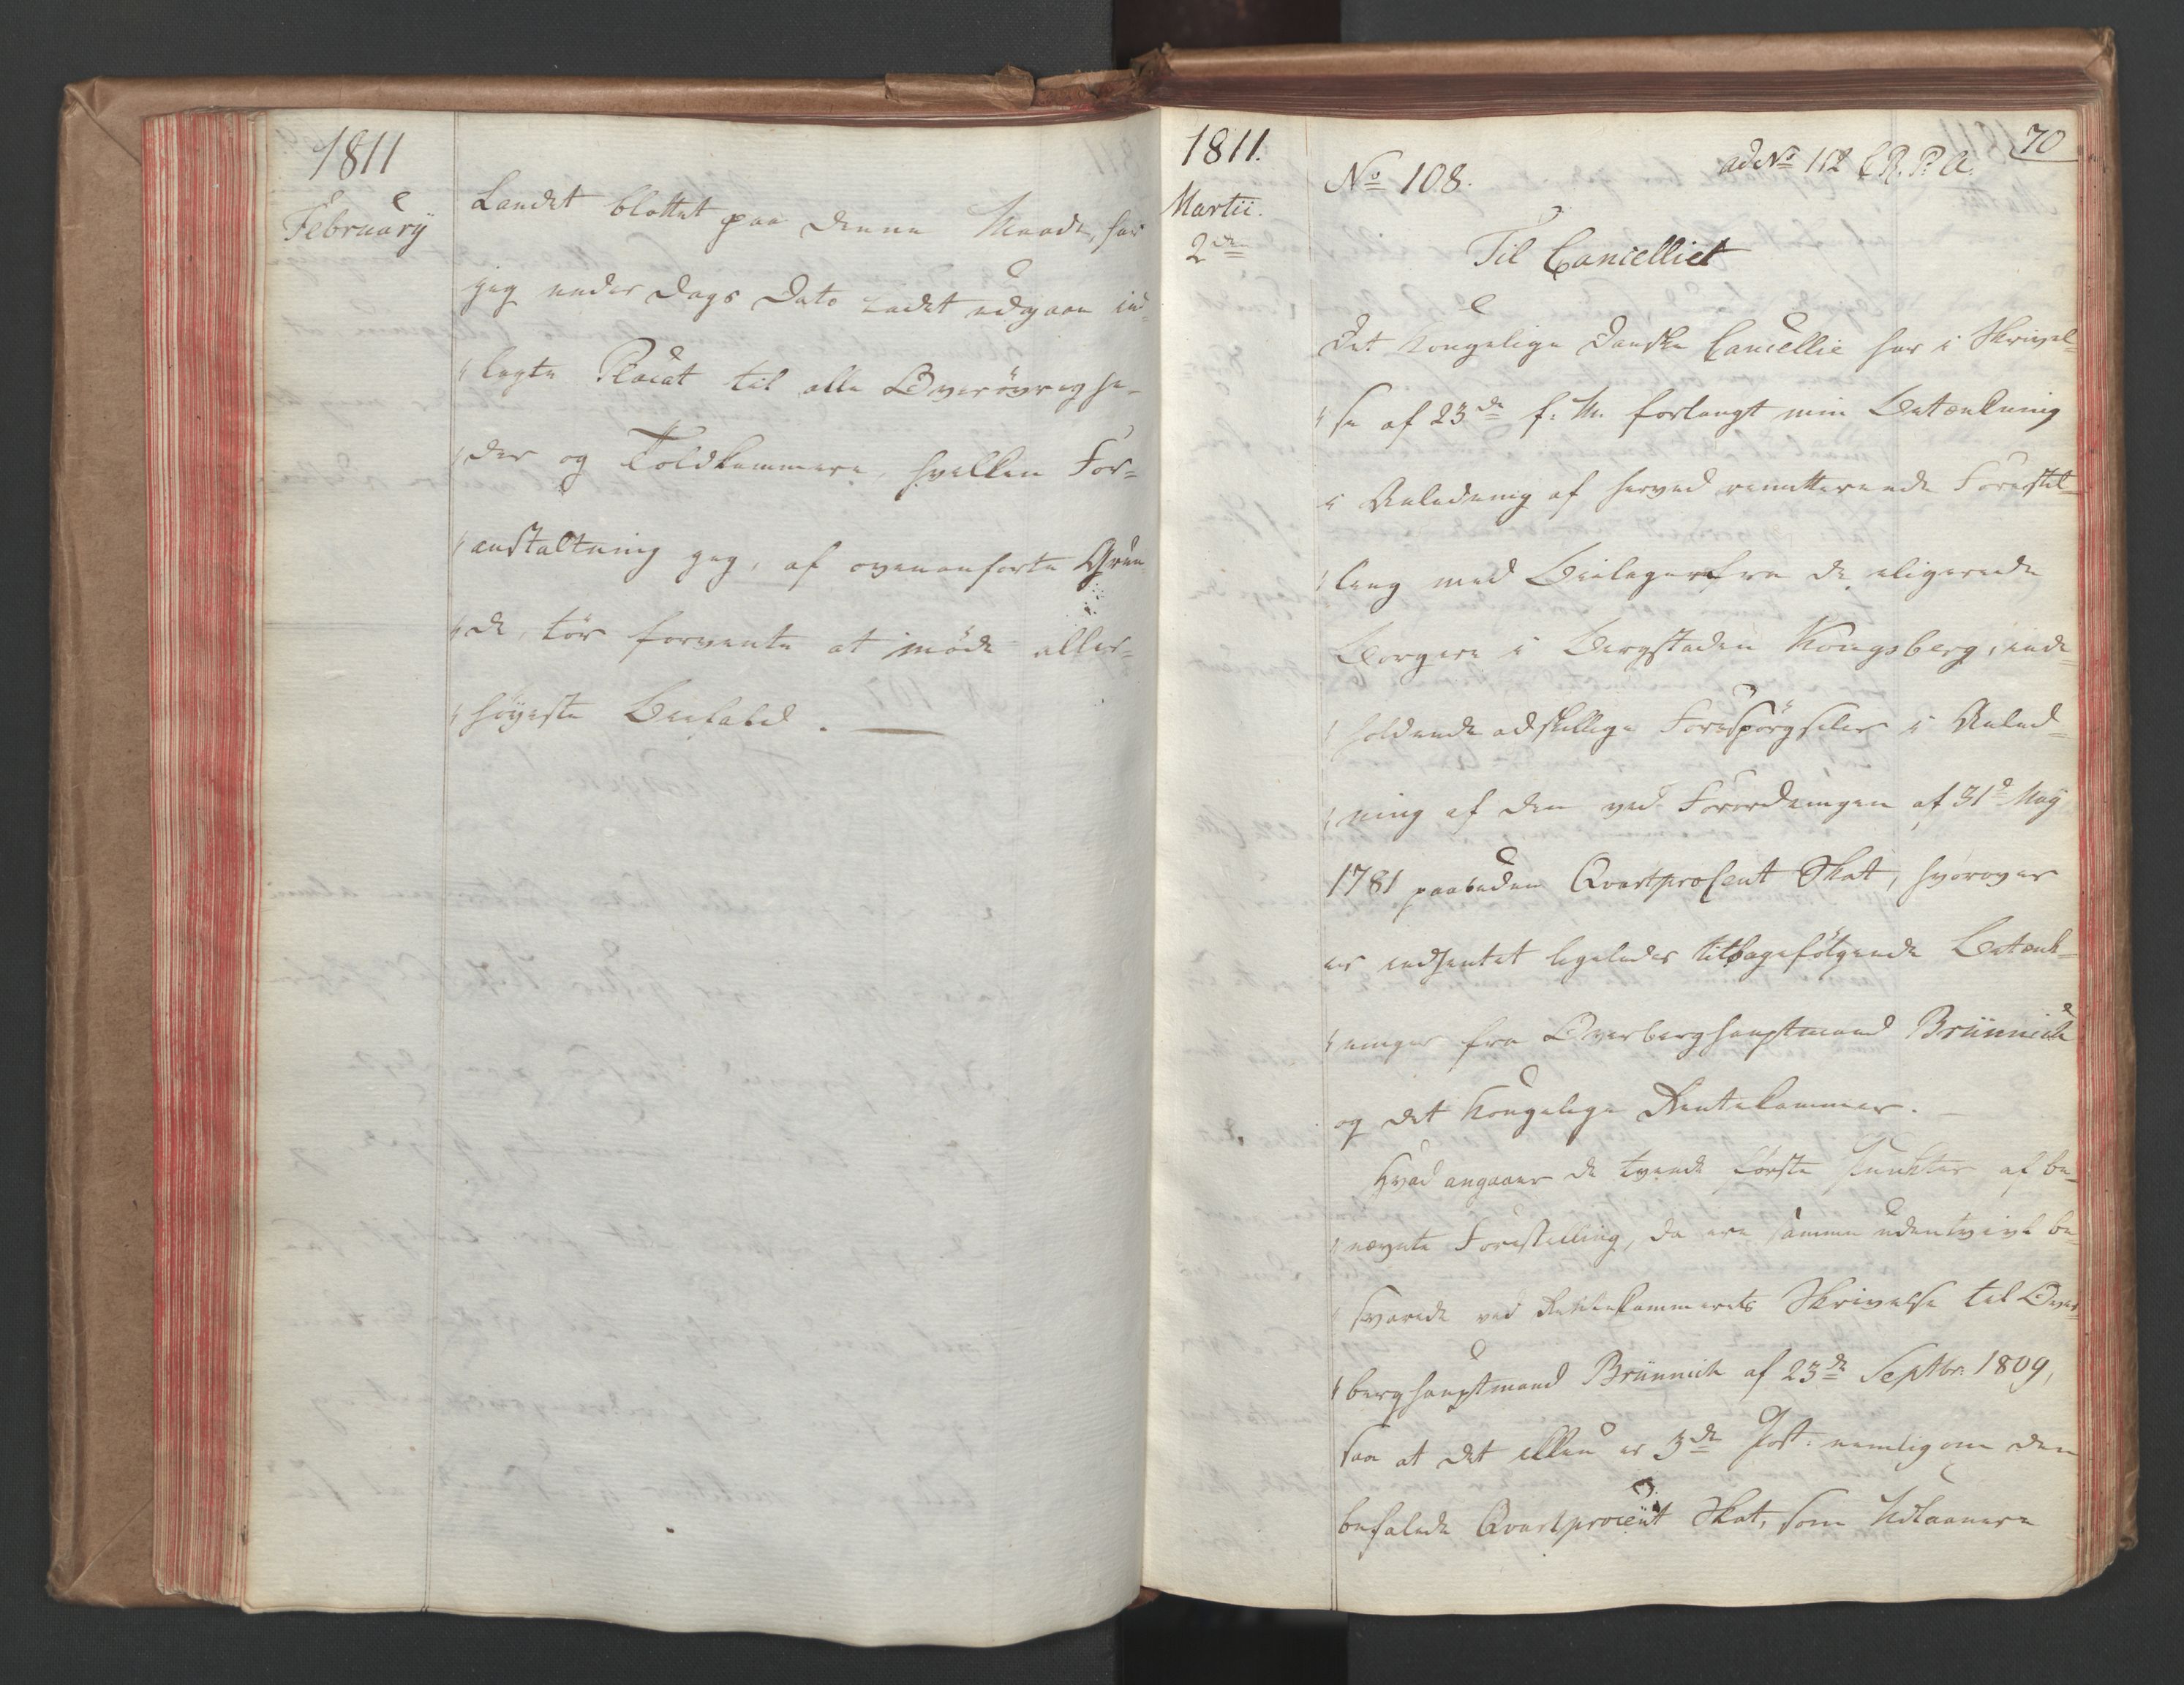 1811
February
Landet blottet paa denne Maade, har
jeg under Dags Dato ladet udgaae ind-
lagte Placat til alle Overövrighe-
der og Toldkammere, hvilken For-
anstaltning jeg, af ovenanførte Grun-
de, tör forvente at möde aller-
höyeste Biefald. —
1811.
Martii.
2den
70
No 108.
ad No 112 C. R. P. A.
Til Cancelliet
Det Kongelige Danske Cancellie har i Skrivel-
se af 23de f: M. forlangt min Betænkning
i Anledning af herved remitterende Forestil-
ling med Bielager fra de eligerede
Borgere i Bergstaden Kongsberg, inde-
holdende adskillige Forespörgseler i Anled-
ning af den ved Forordningen af 31te May
1781 paabudne Qvartprocent Skat, hvorover
er indhentet ligeledes tilbagefölgende Betænk-
ninger fra Overberghauptmand Brünnich
og det Kongelige Rentekammer. —
Hvad angaaer de tvende første Punkter af be-
nævnte Forestilling, da ere samme udentvivl be-
svarede ved Rentekammerets Skrivelse til Over-
berghauptmand Brünnich af 23de Septbr. 1809,
saa at det allene er 3de Post: nemlig om den
befalede Qvartprocent Skat, som Udlaanere